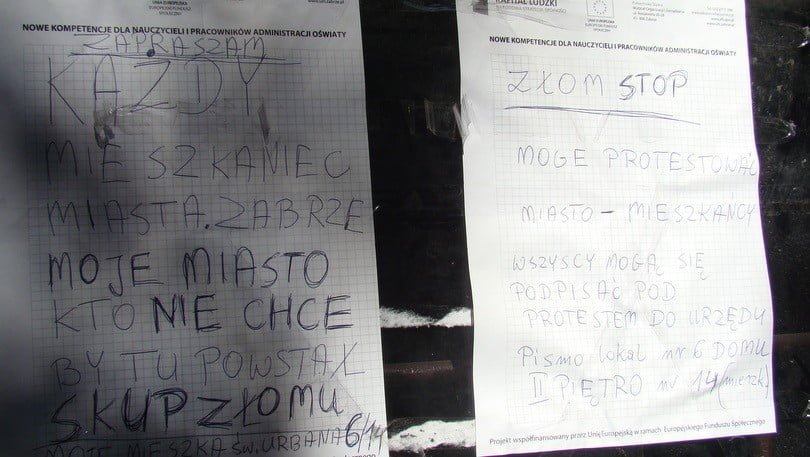 UNIA EUROPEJSKA
EUROPEJSKI FUNDUSZ
SPOŁECZNY
NOWE KOMPETENCJE DLA NAUCZYCIELI I PRACOWNIKÓW ADMINISTRACJI OŚWIATY
ZAPRASZAM
KAŻDY
MIESZKANIEC
MIASTA.ZABRZE
MOJE MIASTO
KTO NIE CHCE
BY TU POWSTAŁ
SKUP ZŁOMU
MOJE MIESZKA ŚW. URBANA 6/14
KAPITAŁ LUDZKI
UNIA EUROPEJSKA
EUROPEJSKI FUNDUSZ
SPOŁECZNY
NOWE KOMPETENCJE DLA NAUCZYCIELI I PRACOWNIKÓW ADMINISTRACJI OŚWIATY
ZŁOM STOP
MOGE PROTESTOWAĆ
MIASTO - MIESZKAŃCY
WSZYSCY MOGĄ SIĘ
PODPISAĆ POD
PROTESTEM DO URZĘDU
Pismo lokal nr 6 DOMU
II PIĘTRO nr 14 (mieszk)
Projekt współfinansowany przez Unię Europejską w ramach Europejskiego Funduszu Społecznego